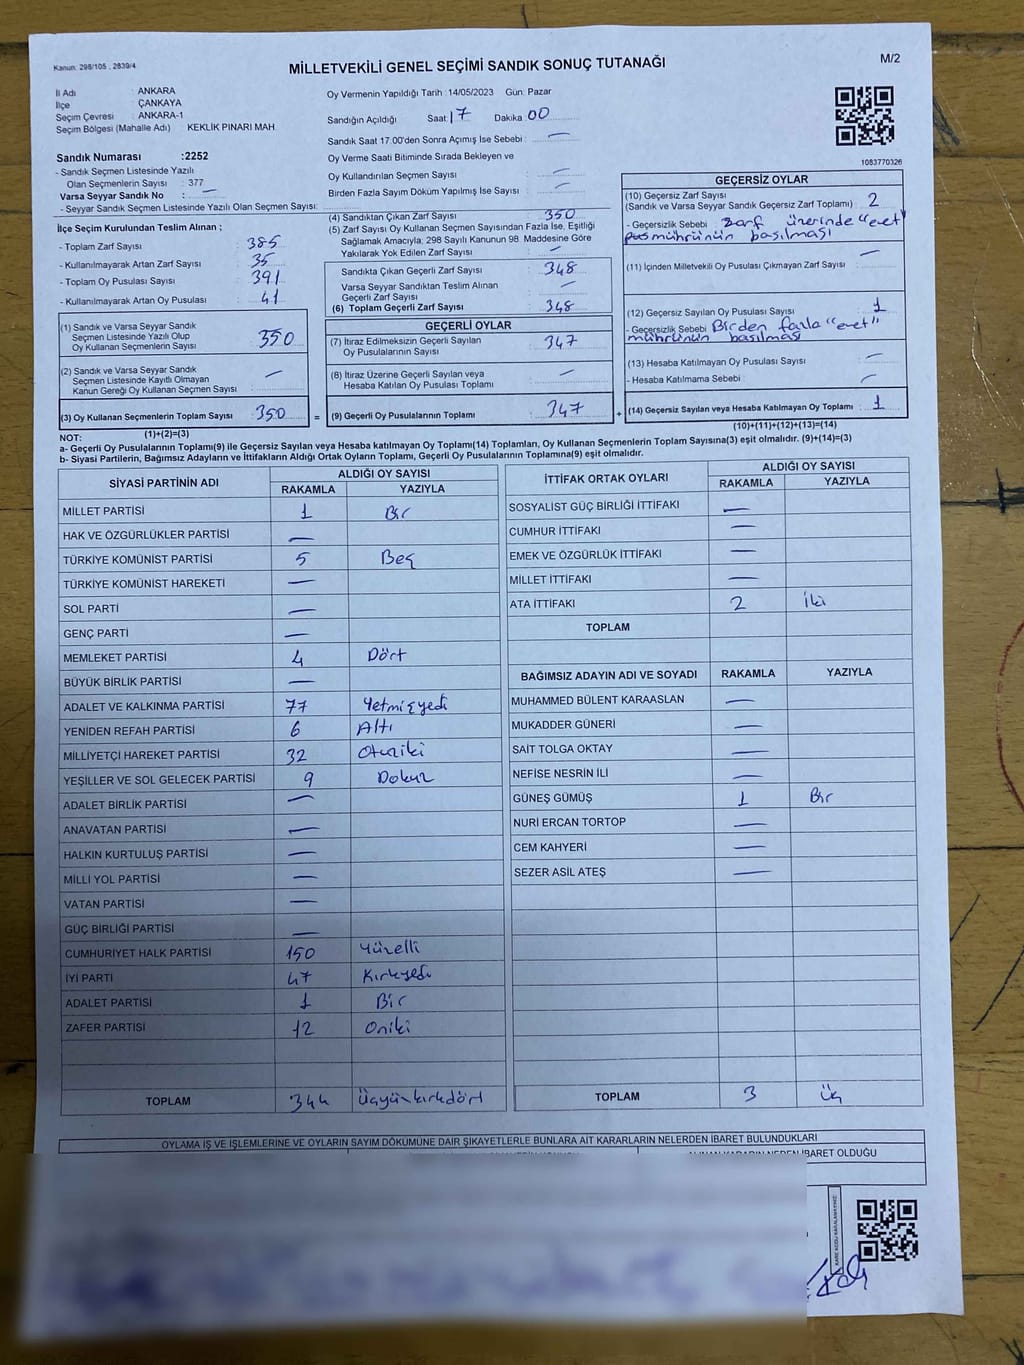 Kanun: 298/105 , 2839/4
MİLLETVEKİLİ GENEL SEÇİMİ SANDIK SONUÇ TUTANAĞI
M/2
İl Adı : ANKARA
İlçe : ÇANKAYA
Seçim Çevresi : ANKARA-1
Seçim Bölgesi (Mahalle Adı) : KEKLİK PINARI MAH.
Sandık Numarası :2252
- Sandık Seçmen Listesinde Yazılı
Olan Seçmenlerin Sayısı : 377
Varsa Seyyar Sandık No : —
- Seyyar Sandık Seçmen Listesinde Yazılı Olan Seçmen Sayısı:
İlçe Seçim Kurulundan Teslim Alınan ;
- Toplam Zarf Sayısı : 385
- Kullanılmayarak Artan Zarf Sayısı : 35
- Toplam Oy Pusulası Sayısı : 391
- Kullanılmayarak Artan Oy Pusulası : 41
(1) Sandık ve Varsa Seyyar Sandık
Seçmen Listesinde Yazılı Olup
Oy Kullanan Seçmenlerin Sayısı : 350
(2) Sandık ve Varsa Seyyar Sandık
Seçmen Listesinde Kayıtlı Olmayan
Kanun Gereği Oy Kullanan Seçmen Sayısı : —
(3) Oy Kullanan Seçmenlerin Toplam Sayısı : 350
(1)+(2)=(3)
Oy Vermenin Yapıldığı Tarih : 14/05/2023 Gün: Pazar
Sandığın Açıldığı Saat: 17 Dakika: 00
Sandık Saat 17.00'den Sonra Açımış İse Sebebi : —
Oy Verme Saati Bitiminde Sırada Bekleyen ve
Oy Kullandırılan Seçmen Sayısı : —
Birden Fazla Sayım Döküm Yapılmış İse Sayısı : —
(4) Sandıktan Çıkan Zarf Sayısı : 350
(5) Zarf Sayısı Oy Kullanan Seçmen Sayısından Fazla İse, Eşitliği
Sağlamak Amacıyla, 298 Sayılı Kanunun 98. Maddesine Göre
Yakılarak Yok Edilen Zarf Sayısı : —
Sandıkta Çıkan Geçerli Zarf Sayısı : 348
Varsa Seyyar Sandıktan Teslim Alınan
Geçerli Zarf Sayısı : —
(6) Toplam Geçerli Zarf Sayısı : 348
GEÇERLİ OYLAR
(7) İtiraz Edilmeksizin Geçerli Sayılan
Oy Pusulalarının Sayısı : 347
(8) İtiraz Üzerine Geçerli Sayılan veya
Hesaba Katılan Oy Pusulası Toplamı : —
= (9) Geçerli Oy Pusulalarının Toplamı : 347 +
1083770326
GEÇERSİZ OYLAR
(10) Geçersiz Zarf Sayısı
(Sandık ve Varsa Seyyar Sandık Geçersiz Zarf Toplamı) : 2
- Geçersizlik Sebebi : Zarf üzerinde "evet"
mührünün basılması
(11) İçinden Milletvekili Oy Pusulası Çıkmayan Zarf Sayısı : —
(12) Geçersiz Sayılan Oy Pusulası Sayısı : 1
- Geçersizlik Sebebi : Birden fazla "evet"
mührünün basılması
(13) Hesaba Katılmayan Oy Pusulası Sayısı : —
- Hesaba Katılmama Sebebi : —
(14) Geçersiz Sayılan veya Hesaba Katılmayan Oy Toplamı : 1
(10)+(11)+(12)+(13)=(14)
NOT:
a- Geçerli Oy Pusulalarının Toplamı(9) ile Geçersiz Sayılan veya Hesaba katılmayan Oy Toplamı(14) Toplamları, Oy Kullanan Seçmenlerin Toplam Sayısına(3) eşit olmalıdır. (9)+(14)=(3)
b- Siyasi Partilerin, Bağımsız Adayların ve İttifakların Aldığı Ortak Oyların Toplamı, Geçerli Oy Pusulalarının Toplamına(9) eşit olmalıdır.
SİYASİ PARTİNİN ADI ALDIĞI OY SAYISI
RAKAMLA YAZIYLA
MİLLET PARTİSİ 1 Bir
HAK VE ÖZGÜRLÜKLER PARTİSİ —
TÜRKİYE KOMÜNİST PARTİSİ 5 Beş
TÜRKİYE KOMÜNİST HAREKETİ —
SOL PARTİ —
GENÇ PARTİ —
MEMLEKET PARTİSİ 4 Dört
BÜYÜK BİRLİK PARTİSİ —
ADALET VE KALKINMA PARTİSİ 77 Yetmişyedi
YENİDEN REFAH PARTİSİ 6 Altı
MİLLİYETÇİ HAREKET PARTİSİ 32 Otuziki
YEŞİLLER VE SOL GELECEK PARTİSİ 9 Dokuz
ADALET BİRLİK PARTİSİ —
ANAVATAN PARTİSİ —
HALKIN KURTULUŞ PARTİSİ —
MİLLİ YOL PARTİSİ —
VATAN PARTİSİ —
GÜÇ BİRLİĞİ PARTİSİ —
CUMHURİYET HALK PARTİSİ 150 Yüzelli
İYİ PARTİ 47 Kırkyedi
ADALET PARTİSİ 1 Bir
ZAFER PARTİSİ 12 Oniki
TOPLAM 344 Üçyüzkırkdört
İTTİFAK ORTAK OYLARI ALDIĞI OY SAYISI
RAKAMLA YAZIYLA
SOSYALİST GÜÇ BİRLİĞİ İTTİFAKI —
CUMHUR İTTİFAKI —
EMEK VE ÖZGÜRLÜK İTTİFAKI —
MİLLET İTTİFAKI —
ATA İTTİFAKI 2 İki
TOPLAM
BAĞIMSIZ ADAYIN ADI VE SOYADI RAKAMLA YAZIYLA
MUHAMMED BÜLENT KARAASLAN —
MUKADDER GÜNERİ —
SAİT TOLGA OKTAY —
NEFİSE NESRİN İLİ —
GÜNEŞ GÜMÜŞ 1 Bir
NURİ ERCAN TORTOP —
CEM KAHYERİ —
SEZER ASİL ATEŞ —
TOPLAM 3 Üç
OYLAMA İŞ VE İŞLEMLERİNE VE OYLARIN SAYIM DÖKÜMÜNE DAİR ŞİKAYETLERLE BUNLARA AİT KARARLARIN NELERDEN İBARET BULUNDUKLARI
ALINAN KARARIN NEDEN İBARET OLDUĞU